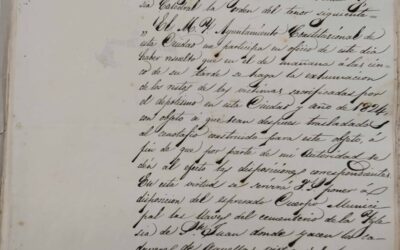 sia Catedral la orden del tenor siguiente =
"El M. Y. Ayuntamiento Constitucional de
esta Ciudad me participa en oficio de este dia
haber resuelto que en el de mañana á las cin-
co de su tarde se haga la exhumacion
de los restos de las victimas sacrificadas por
el despotismo en esta Ciudad y año de 1824,
con objeto á que sean despues trasladados
al cenotafio construido para este objeto, á
fin de que por parte de mi autoridad se
dén al efecto las disposiciones correspondientes
En esta virtud se servirá V. S. poner á
disposicion del espresado Cuerpo Munici-
pal las llaves del cementerio de la Ygle-
sia de Sn. Juan donde yacen los ca-